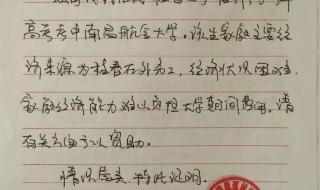 高考考中南昌航空大学。该生家庭主要经
济来源为程春在外务工,经济状况困难.
家庭经济能力难以负担大学期间费用,请
有关方面予以资助。
情况属实 特此证明.